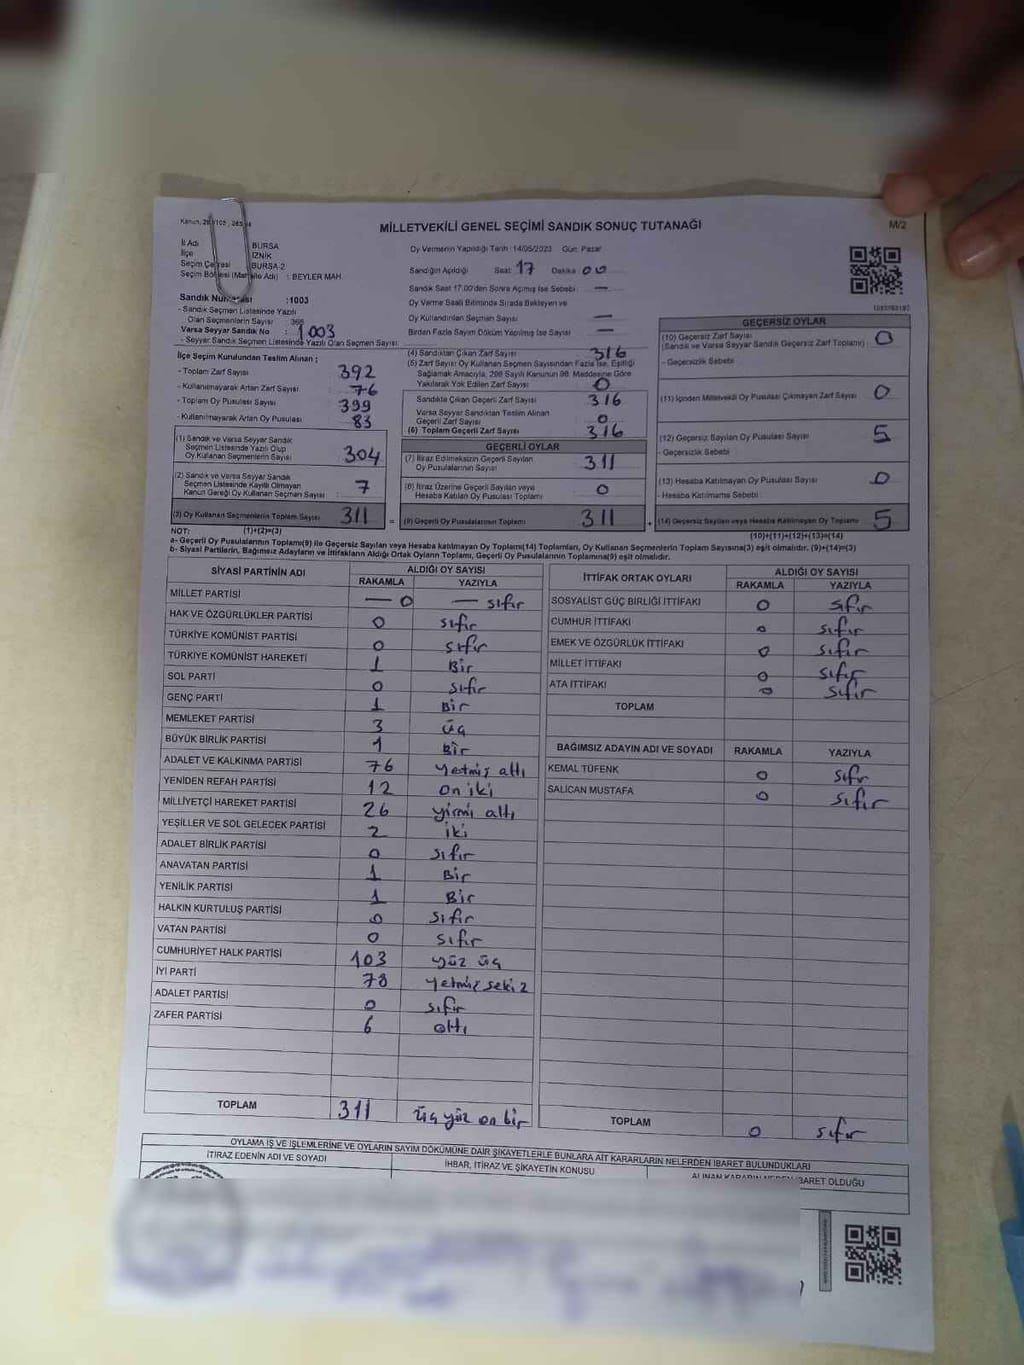 MİLLETVEKİLİ GENEL SEÇİMİ SANDIK SONUÇ TUTANAĞI
M/2
İl Adı BURSA
İlçe İZNİK
Seçim Çevresi BURSA-2
Seçim Bölgesi (Mahalle Adı) : BEYLER MAH.
Sandık Numarası :1003
- Sandık Seçmen Listesinde Yazılı
Olan Seçmenlerin Sayısı : 366
Varsa Seyyar Sandık No : 1003
- Seyyar Sandık Seçmen Listesinde Yazılı Olan Seçmen Sayısı:
İlçe Seçim Kurulundan Teslim Alınan ;
- Toplam Zarf Sayısı 392
- Kullanılmayarak Artan Zarf Sayısı 76
- Toplam Oy Pusulası Sayısı 399
- Kullanılmayarak Artan Oy Pusulası 83
(1) Sandık ve Varsa Seyyar Sandık
Seçmen Listesinde Yazılı Olup
Oy Kullanan Seçmenlerin Sayısı 304
(2) Sandık ve Varsa Seyyar Sandık
Seçmen Listesinde Kayıtlı Olmayan
Kanun Gereği Oy Kullanan Seçmen Sayısı 7
(3) Oy Kullanan Seçmenlerin Toplam Sayısı 311
Oy Vermenin Yapıldığı Tarih :14/05/2023 Gün: Pazar
Sandığın Açıldığı Saat: 17 Dakika: 00
Sandık Saat 17.00'den Sonra Açılmış İse Sebebi : —
Oy Verme Saati Bitiminde Sırada Bekleyen ve
Oy Kullandırılan Seçmen Sayısı —
Birden Fazla Sayım Döküm Yapılmış İse Sayısı —
(4) Sandıktan Çıkan Zarf Sayısı 316
(5) Zarf Sayısı Oy Kullanan Seçmen Sayısından Fazla İse, Eşitliği
Sağlamak Amacıyla, 298 Sayılı Kanunun 98. Maddesine Göre
Yakılarak Yok Edilen Zarf Sayısı 0
Sandıkta Çıkan Geçerli Zarf Sayısı 316
Varsa Seyyar Sandıktan Teslim Alınan
Geçerli Zarf Sayısı 0
(6) Toplam Geçerli Zarf Sayısı 316
GEÇERLİ OYLAR
(7) İtiraz Edilmeksizin Geçerli Sayılan
Oy Pusulalarının Sayısı 311
(8) İtiraz Üzerine Geçerli Sayılan veya
Hesaba Katılan Oy Pusulası Toplamı 0
= (9) Geçerli Oy Pusulalarının Toplamı 311
GEÇERSİZ OYLAR
(10) Geçersiz Zarf Sayısı
(Sandık ve Varsa Seyyar Sandık Geçersiz Zarf Toplamı) : 0
- Geçersizlik Sebebi
(11) İçinden Milletvekili Oy Pusulası Çıkmayan Zarf Sayısı 0
(12) Geçersiz Sayılan Oy Pusulası Sayısı 5
- Geçersizlik Sebebi
(13) Hesaba Katılmayan Oy Pusulası Sayısı 0
- Hesaba Katılmama Sebebi :
+ (14) Geçersiz Sayılan veya Hesaba Katılmayan Oy Toplamı 5
NOT: (1)+(2)=(3) (10)+(11)+(12)+(13)=(14)
a- Geçerli Oy Pusulalarının Toplamı(9) ile Geçersiz Sayılan veya Hesaba katılmayan Oy Toplamı(14) Toplamları, Oy Kullanan Seçmenlerin Toplam Sayısına(3) eşit olmalıdır. (9)+(14)=(3)
b- Siyasi Partilerin, Bağımsız Adayların ve İttifakların Aldığı Ortak Oyların Toplamı, Geçerli Oy Pusulalarının Toplamına(9) eşit olmalıdır.
SİYASİ PARTİNİN ADI ALDIĞI OY SAYISI
RAKAMLA YAZIYLA
MİLLET PARTİSİ — 0 — sıfır
HAK VE ÖZGÜRLÜKLER PARTİSİ 0 sıfır
TÜRKİYE KOMÜNİST PARTİSİ 0 sıfır
TÜRKİYE KOMÜNİST HAREKETİ 1 Bir
SOL PARTİ 0 sıfır
GENÇ PARTİ 1 Bir
MEMLEKET PARTİSİ 3 üç
BÜYÜK BİRLİK PARTİSİ 1 Bir
ADALET VE KALKINMA PARTİSİ 76 yetmiş altı
YENİDEN REFAH PARTİSİ 12 on iki
MİLLİYETÇİ HAREKET PARTİSİ 26 yirmi altı
YEŞİLLER VE SOL GELECEK PARTİSİ 2 iki
ADALET BİRLİK PARTİSİ 0 sıfır
ANAVATAN PARTİSİ 1 Bir
YENİLİK PARTİSİ 1 Bir
HALKIN KURTULUŞ PARTİSİ 0 sıfır
VATAN PARTİSİ 0 sıfır
CUMHURİYET HALK PARTİSİ 103 yüz üç
İYİ PARTİ 78 yetmiş sekiz
ADALET PARTİSİ 0 sıfır
ZAFER PARTİSİ 6 altı
TOPLAM 311 üç yüz on bir
İTTİFAK ORTAK OYLARI ALDIĞI OY SAYISI
RAKAMLA YAZIYLA
SOSYALİST GÜÇ BİRLİĞİ İTTİFAKI 0 sıfır
CUMHUR İTTİFAKI 0 sıfır
EMEK VE ÖZGÜRLÜK İTTİFAKI 0 sıfır
MİLLET İTTİFAKI 0 sıfır
ATA İTTİFAKI 0 sıfır
TOPLAM
BAĞIMSIZ ADAYIN ADI VE SOYADI RAKAMLA YAZIYLA
KEMAL TÜFENK 0 sıfr
SALİCAN MUSTAFA 0 sıfır
TOPLAM 0 sıfır
OYLAMA İŞ VE İŞLEMLERİNE VE OYLARIN SAYIM DÖKÜMÜNE DAİR ŞİKAYETLERLE BUNLARA AİT KARARLARIN NELERDEN İBARET BULUNDUKLARI
İTİRAZ EDENİN ADI VE SOYADI İHBAR, İTİRAZ VE ŞİKAYETİN KONUSU ALINAN KARARIN NEDEN İBARET OLDUĞU